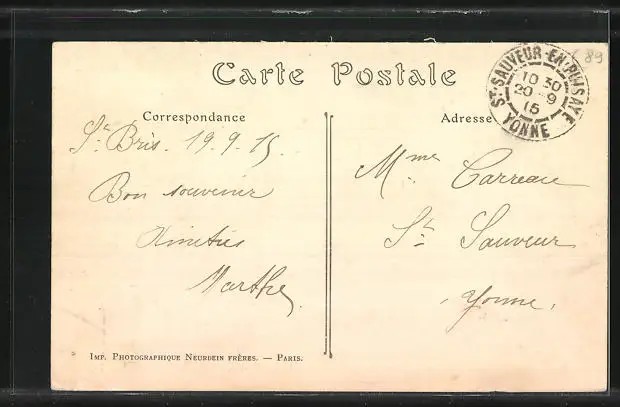 Carte Postale
ST-SAUVEUR-EN-PUISAYE
10 30
20 - 9
15
YONNE
89
Correspondance
Adresse
St Bris. 19.9.15.
Bon souvenir
Marthe
Mme Carreau
St Sauveur
Yonne.
IMP. PHOTOGRAPHIQUE NEURDEIN FRÈRES. — PARIS.